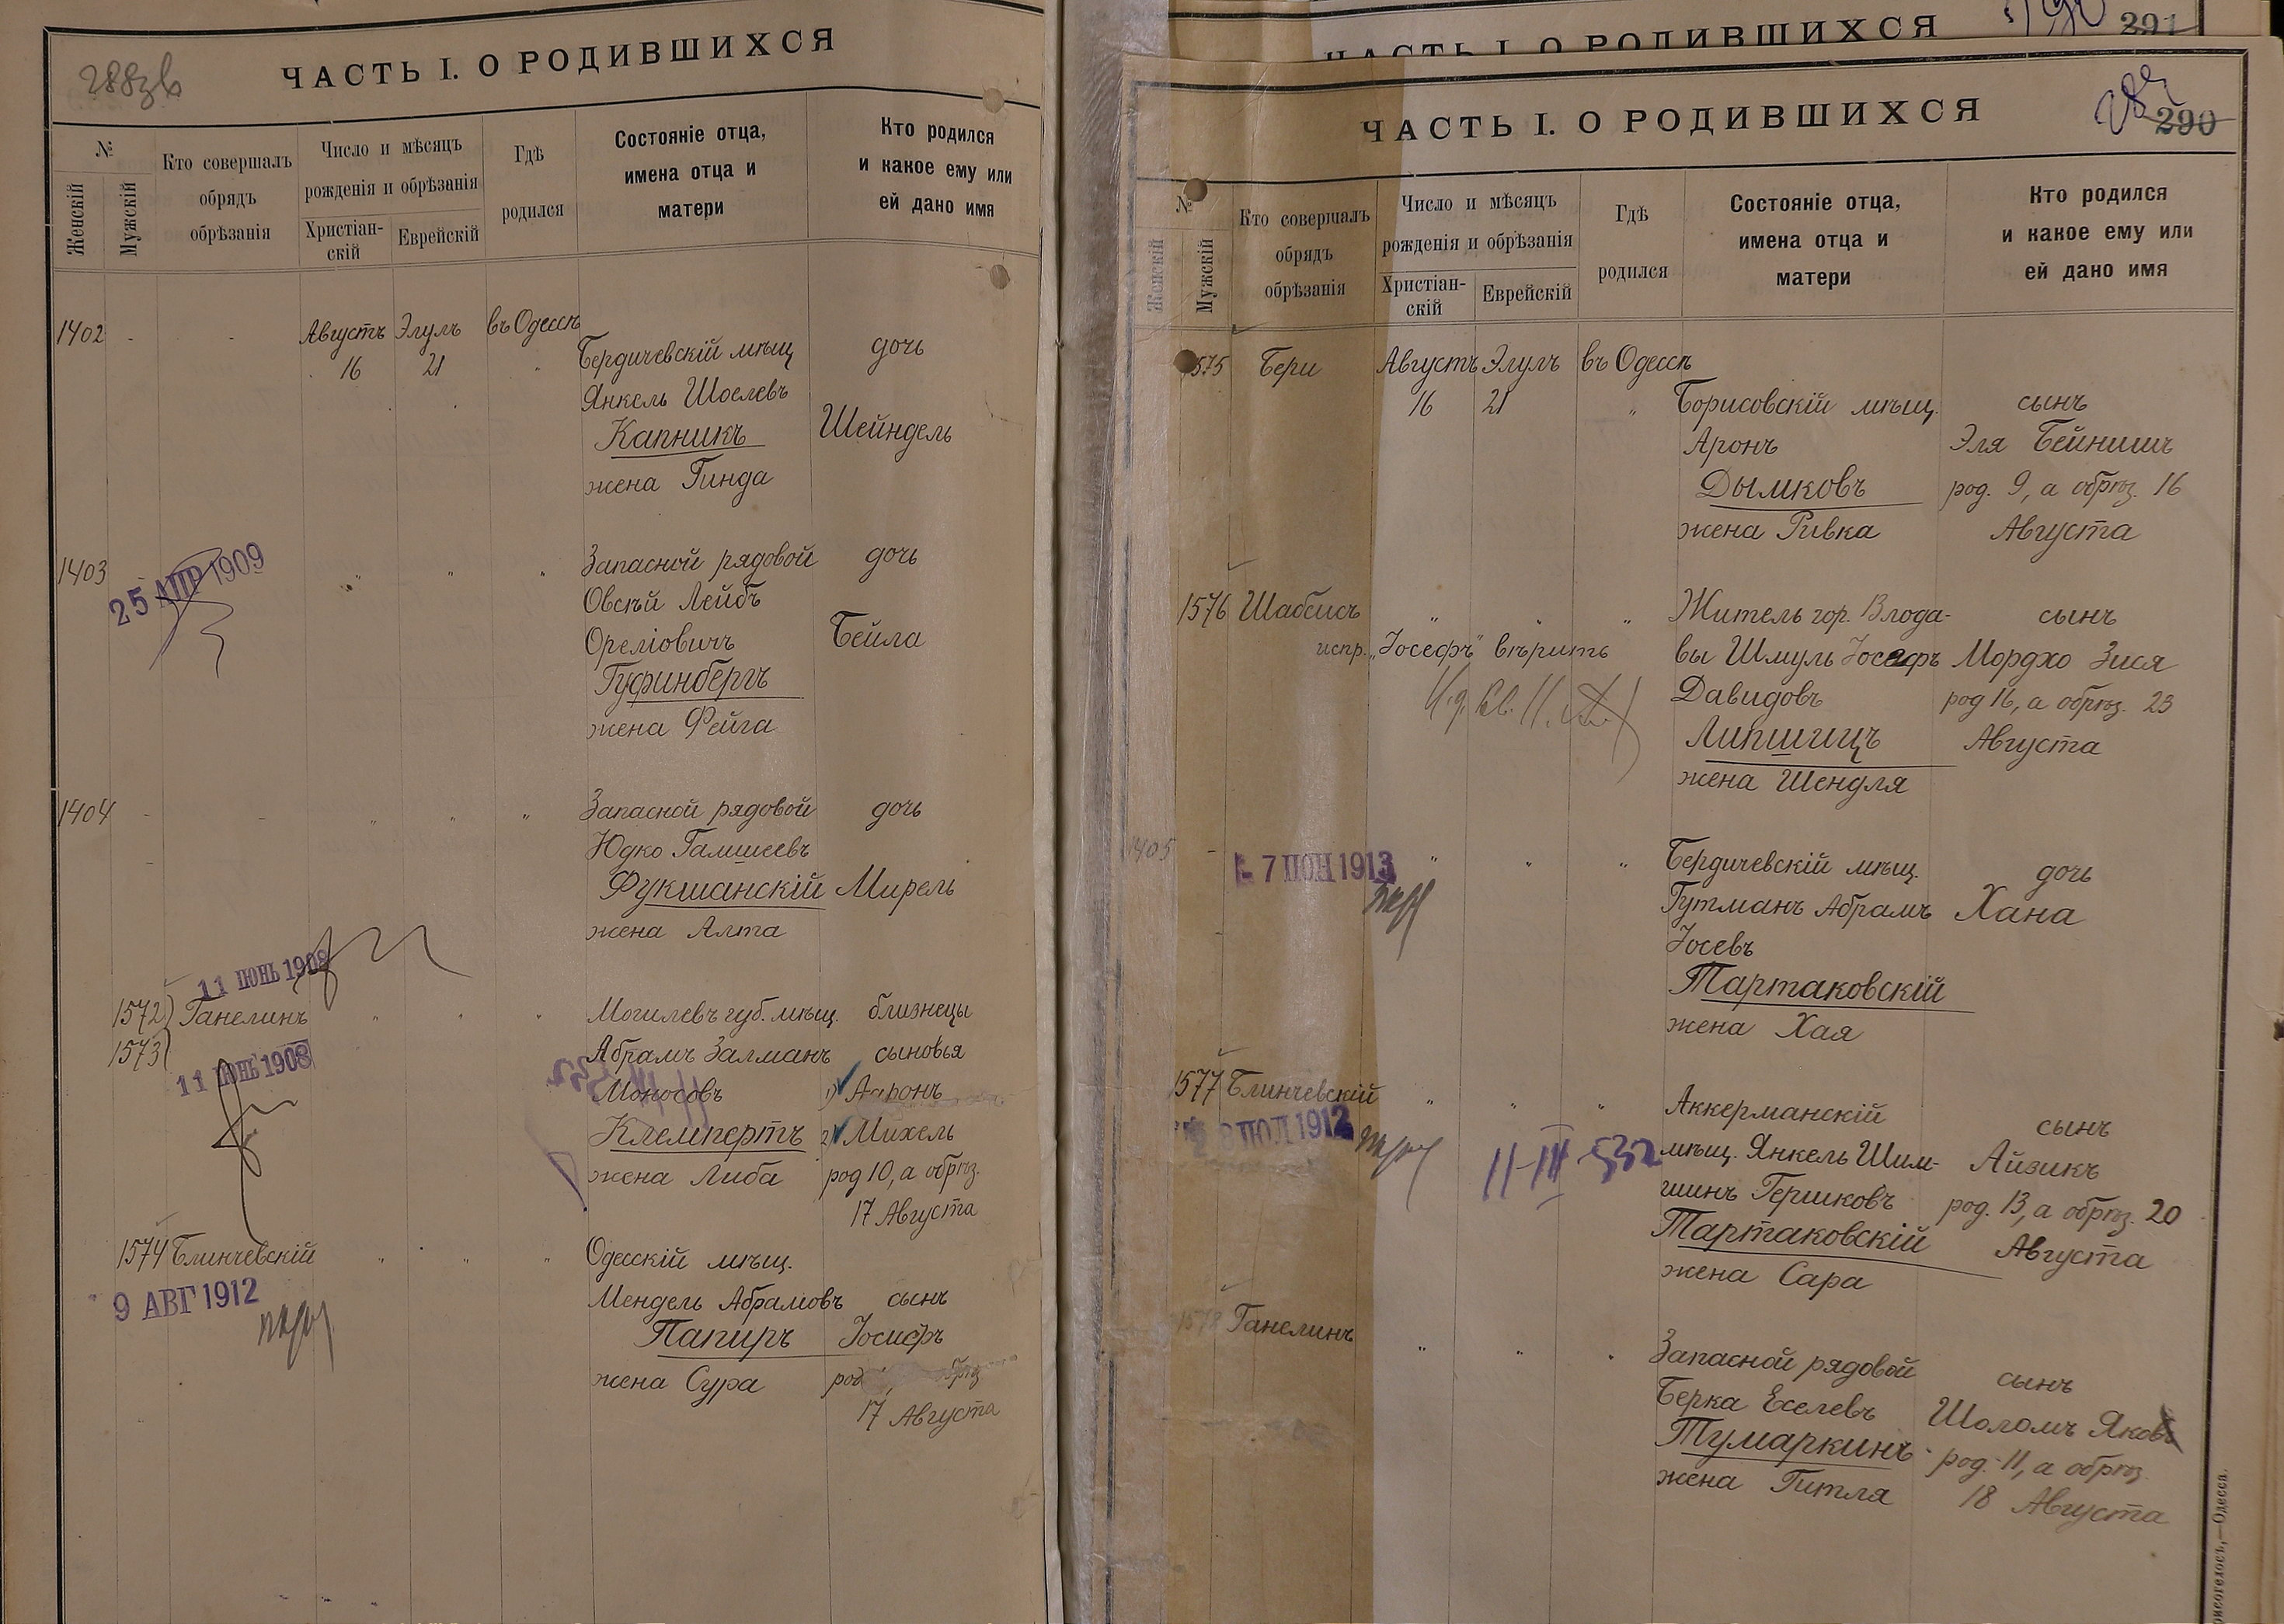 288зв
ЧАСТЬ I. О РОДИВШИХСЯ
№
Женскій
Мужскій
Кто совершалъ
обрядъ
обрѣзанія
Число и мѣсяцъ
рожденія и обрѣзанія
Христіан-
скій
Еврейскій
Гдѣ
родился
Состояніе отца,
имена отца и
матери
Кто родился
и какое ему или
ей дано имя
1402 - - Августъ Элулъ въ Одессѣ
16 21 "
Бердичевскій мѣщ дочь
Янкель Шоелевъ
Капникъ Шейндель
жена Гинда
1403 - " " " Запасной рядовой дочь
25 АПР 1909
Овсѣй Лейбъ
Ореліовичъ Бейла
Гуфинбергъ
жена Фейга
1404 - - " " " Запасной рядовой дочь
Юдко Гамшеевъ
Фукшанскій Мирель
жена Алта
11 ІЮНЬ 1908
1572) Ганелинъ " " " Могилевъ губ. мѣщ. близнецы
1573)
11 ІЮНЬ 1908
Абрамъ Залманъ сыновья
Моносовъ 1) Ааронъ
Клемпертъ 2) Михель
жена Либа род 10, а обрѣз.
17 Августа
1574 Блинчевскій " " " Одесскій мѣщ.
9 АВГ 1912
Мендель Абрамовъ сынъ
Папиръ Іосифъ
жена Сура род обрѣз
17 Августа
ЧАСТЬ I. О РОДИВШИХСЯ
291
290
ЧАСТЬ I. О РОДИВШИХСЯ
№
Женскій
Мужскій
Кто совершалъ
обрядъ
обрѣзанія
Число и мѣсяцъ
рожденія и обрѣзанія
Христіан-
скій
Еврейскій
Гдѣ
родился
Состояніе отца,
имена отца и
матери
Кто родился
и какое ему или
ей дано имя
1575 Бери Августъ Элулъ въ Одессѣ
16 21 "
Борисовскій мѣщ. сынъ
Аронъ Эля Бейнишъ
Дымковъ род. 9, а обрѣз. 16
жена Ривка Августа
1576 Шабсисъ " " " Житель гор. Влода- сынъ
испр. "Іосефъ" вѣрить
вы Шмуль Іосефъ Мордхо Зися
Давидовъ род 16, а обрѣз. 23
Липшицъ Августа
жена Шендля
1405 - " " " Бердичевскій мѣщ. дочь
7 ІЮН 1913
Гутманъ Абрамъ Хана
Іосевъ
Тартаковскій
жена Хая
1577 Блинчевскій " " " Аккерманскій сынъ
ІЮЛ 1912
мѣщ. Янкель Шим- Айзикъ
шинъ Гершковъ род. 13, а обрѣз. 20
Тартаковскій Августа
жена Сара
11-III-532
1578 Ганелинъ " " " Запасной рядовой сынъ
Берка Еселевъ Шоломъ Яковъ
Тумаркинъ род. 11, а обрѣз.
жена Гитля 18 Августа